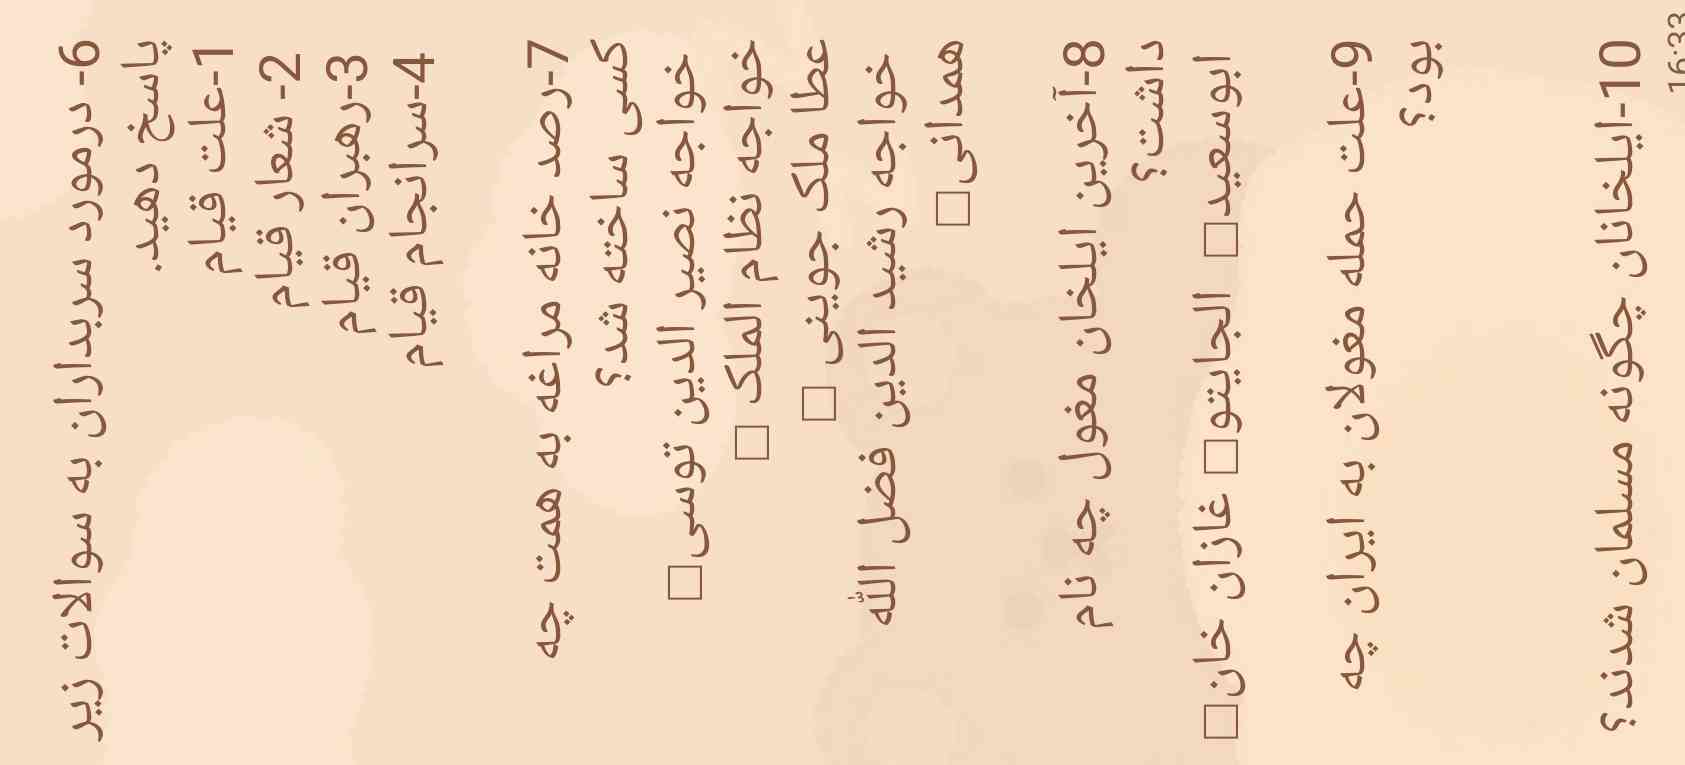 6- درمورد سربداران به سوالات زیر
پاسخ دهید.
1-علت قیام
2- شعار قیام
3-رهبران قیام
4-سرانجام قیام
7-رصد خانه مراغه به همت چه
کسی ساخته شد؟
خواجه نصیر الدین توسی□
خواجه نظام الملک □
عطا ملک جوینی □
خواجه رشید الدین فضل الله
همدانی□
8-آخرین ایلخان مغول چه نام
داشت؟
ابوسعید□ الجایتو□ غازان خان□
9-علت حمله مغولان به ایران چه
بود؟
10-ایلخانان چگونه مسلمان شدند؟
16:33